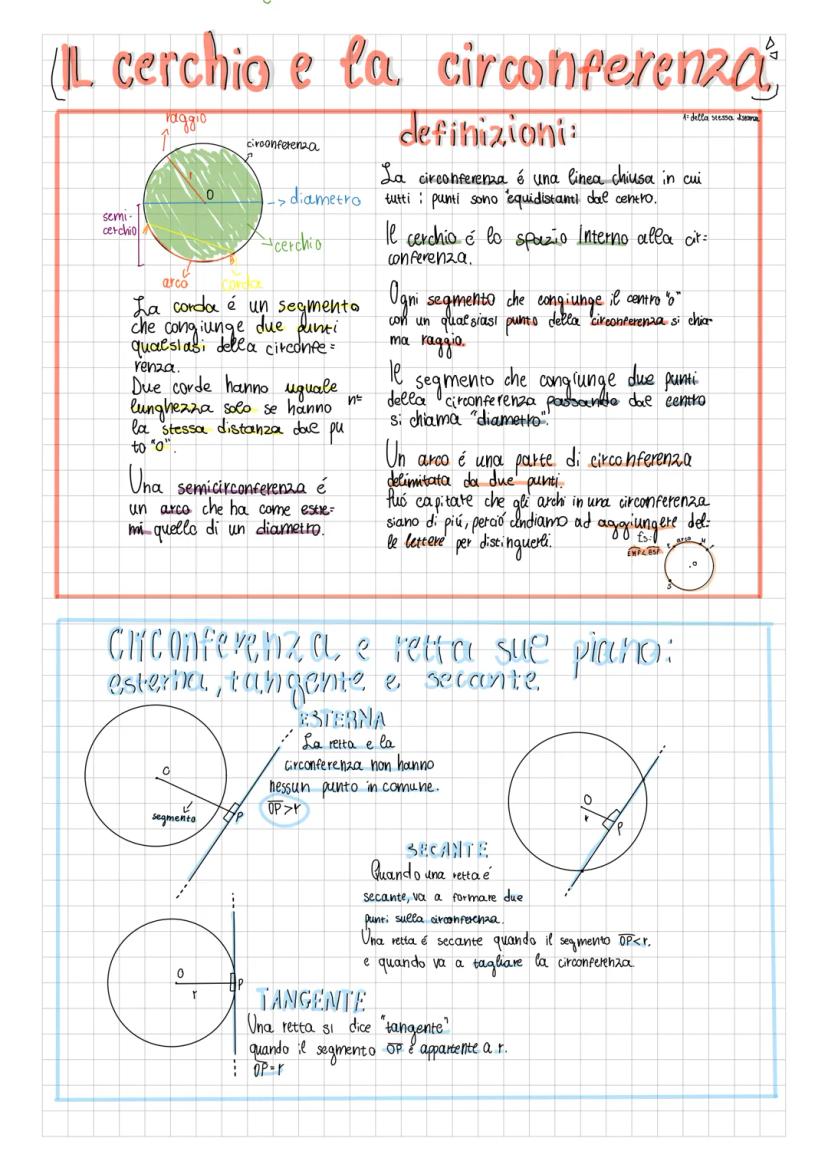 IL cerchio e la circonferenza
raggio
circonferenza
r
O
diametro
semi-
cerchio
cerchio
arco
corda
La corda é un segmento
che congiunge due punti
qualsiasi della circonfe=
renza.
Due corde hanno uguale
lunghezza solo se hanno n=
la stessa distanza dal pu
to "O".
Una semicirconferenza é
un arco che ha come estre=
mi quello di un diametro.
definizioni:
La circonferenza é una linea chiusa in cui
tutti i punti sono equidistanti dal centro.
Il cerchio é lo spazio Interno alla cir=
conferenza.
Ogni segmento che congiunge il centro "o"
con un qualsiasi punto della circonferenza si chia-
ma raggio.
Il segmento che congiunge due punti
della circonferenza passando dal centro
si chiama "diametro".
Un arco é una parte di circonferenza
delimitata da due punti.
Puó capitate che gli archi in una circonferenza
siano di piú, perció andiamo ad aggiungere del=
le lettere per distinguerli.
Es:
arco
.o
S
Circonferenza e retta sul piano:
esterna, tangente e secante
ESTERNA
La retta e la
circonferenza non hanno
nessun punto in comune.
OP>r
O
segmento
P
O
r
P
SECANTE
Quando una retta é
secante, va a formare due
punti sulla circonferenza.
Una retta é secante quando il segmento OP<r.
e quando va a tagliare la circonferenza
O
r
P
TANGENTE
Una retta si dice "tangente"
quando il segmento OP é appartente a r.
OP=r